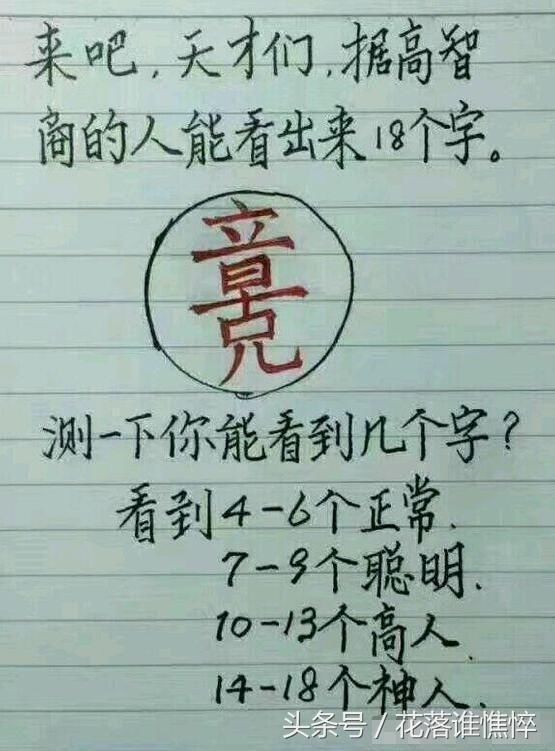 来吧，天才们，据高智
商的人能看出来18个字。
测一下你能看到几个字？
看到4-6个正常.
7-9个聪明.
10-13个高人.
14-18个神人.
头条号 / 花落谁憔悴